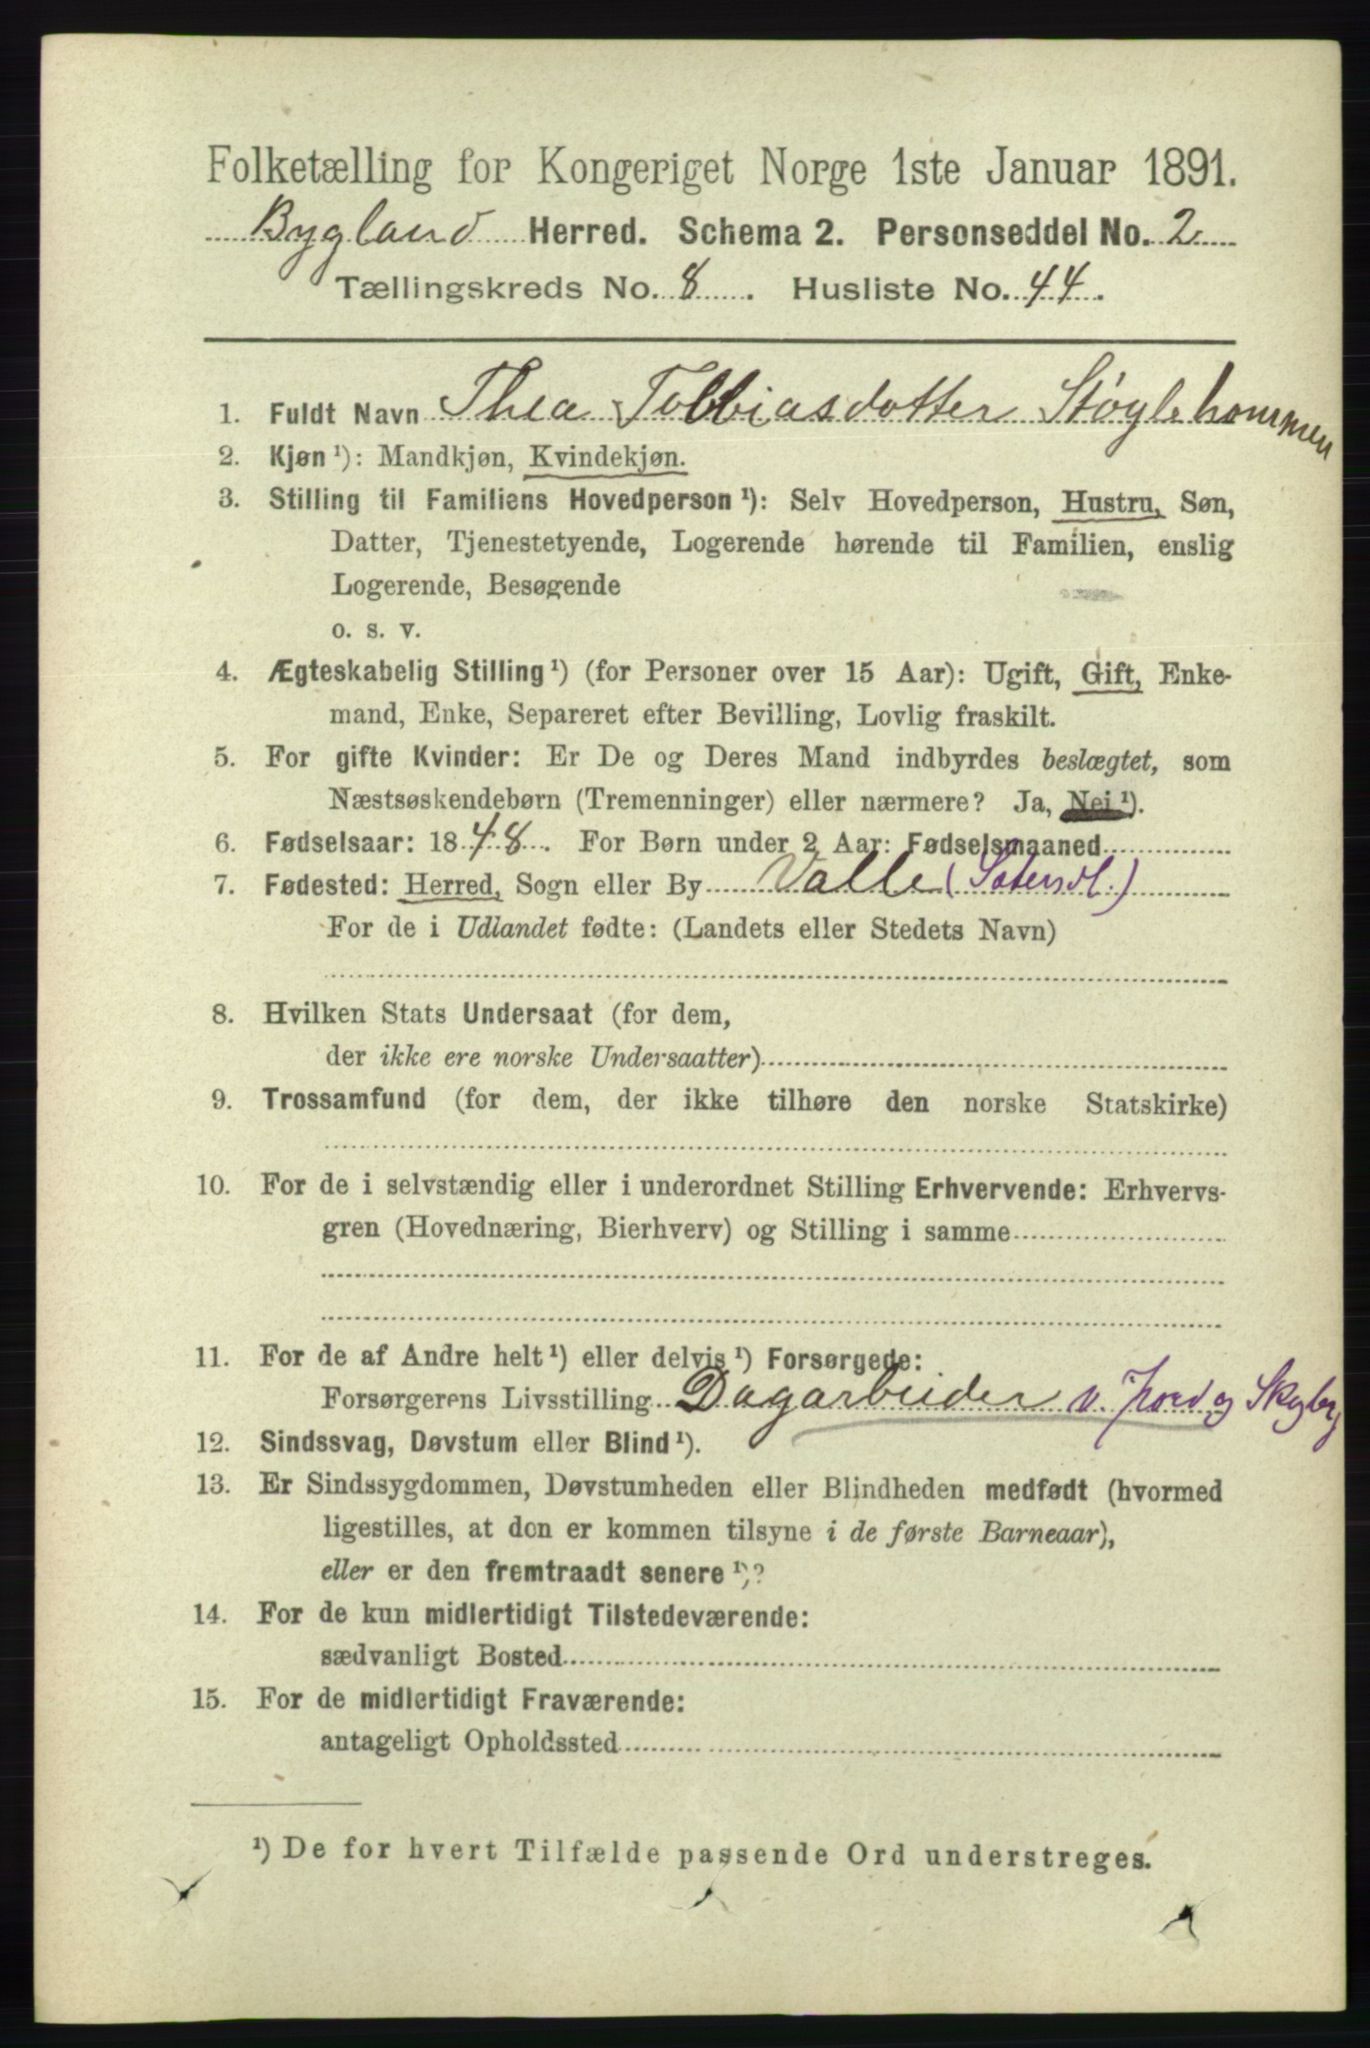 Folketælling for Kongeriget Norge 1ste Januar 1891.
Bygland Herred. Schema 2. Personseddel No. 2
Tællingskreds No. 8. Husliste No. 44.
1. Fuldt Navn Thea Tobbiasdotter Støylehommen
2. Kjøn¹): Mandkjøn, Kvindekjøn.
3. Stilling til Familiens Hovedperson¹): Selv Hovedperson, Hustru, Søn,
Datter, Tjenestetyende, Logerende hørende til Familien, enslig
Logerende, Besøgende
o. s. v.
4. Ægteskabelig Stilling¹) (for Personer over 15 Aar): Ugift, Gift, Enke-
mand, Enke, Separeret efter Bevilling, Lovlig fraskilt.
5. For gifte Kvinder: Er De og Deres Mand indbyrdes beslægtet, som
Næstsøskendebørn (Tremenninger) eller nærmere? Ja, Nei¹).
6. Fødselsaar: 1848. For Børn under 2 Aar: Fødselsmaaned
7. Fødested: Herred, Sogn eller By Valle (Sætersdl.)
For de i Udlandet fødte: (Landets eller Stedets Navn)
8. Hvilken Stats Undersaat (for dem,
der ikke ere norske Undersaatter)
9. Trossamfund (for dem, der ikke tilhøre den norske Statskirke)
10. For de i selvstændig eller i underordnet Stilling Erhvervende: Erhvervs-
gren (Hovednæring, Bierhverv) og Stilling i samme
11. For de af Andre helt¹) eller delvis¹) Forsørgede:
Forsørgerens Livsstilling Dagarbeider v. Jord og Skogbrg
12. Sindssvag, Døvstum eller Blind¹).
13. Er Sindssygdommen, Døvstumheden eller Blindheden medfødt (hvormed
ligestilles, at den er kommen tilsyne i de første Barneaar),
eller er den fremtraadt senere¹)?
14. For de kun midlertidigt Tilstedeværende:
sædvanligt Bosted
15. For de midlertidigt Fraværende:
antageligt Opholdssted
¹) De for hvert Tilfælde passende Ord understreges.